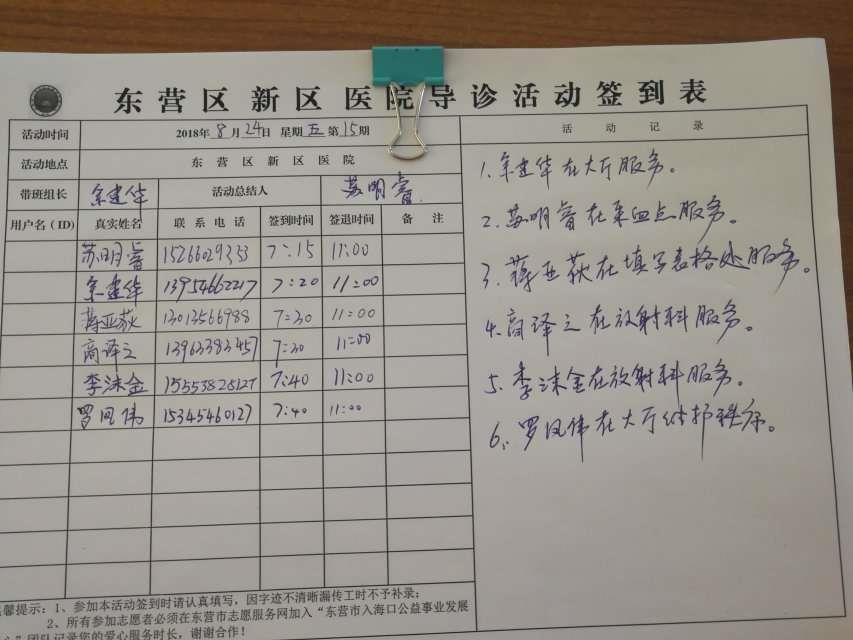 东营区新区医院导诊活动签到表
活动时间 2018年8月24日 星期五 第15期 活动记录
活动地点 东营区新区医院
带班组长 余建华 活动总结人 苏明睿
用户名(ID) 真实姓名 联系电话 签到时间 签退时间 备注
苏明睿 15266029333 7:15 11:00
余建华 13954662217 7:20 11:00
蒋亚荻 13013566988 7:30 11:00
高译之 13963383457 7:30 11:00
李沫金 15553828127 7:40 11:00
罗凤伟 15345460127 7:40 11:00
1.余建华在大厅服务。
2.苏明睿在采血点服务。
3.蒋亚荻在填写表格处服务。
4.高译之在放射科服务。
5.李沫金在放射科服务。
6.罗凤伟在大厅维护秩序。
馨提示:1、参加本活动签到时请认真填写,因字迹不清晰漏传工时不予补录;
2、所有参加志愿者必须在东营市志愿服务网加入“东营市入海口公益事业发展
”团队记录您的爱心服务时长,谢谢合作!